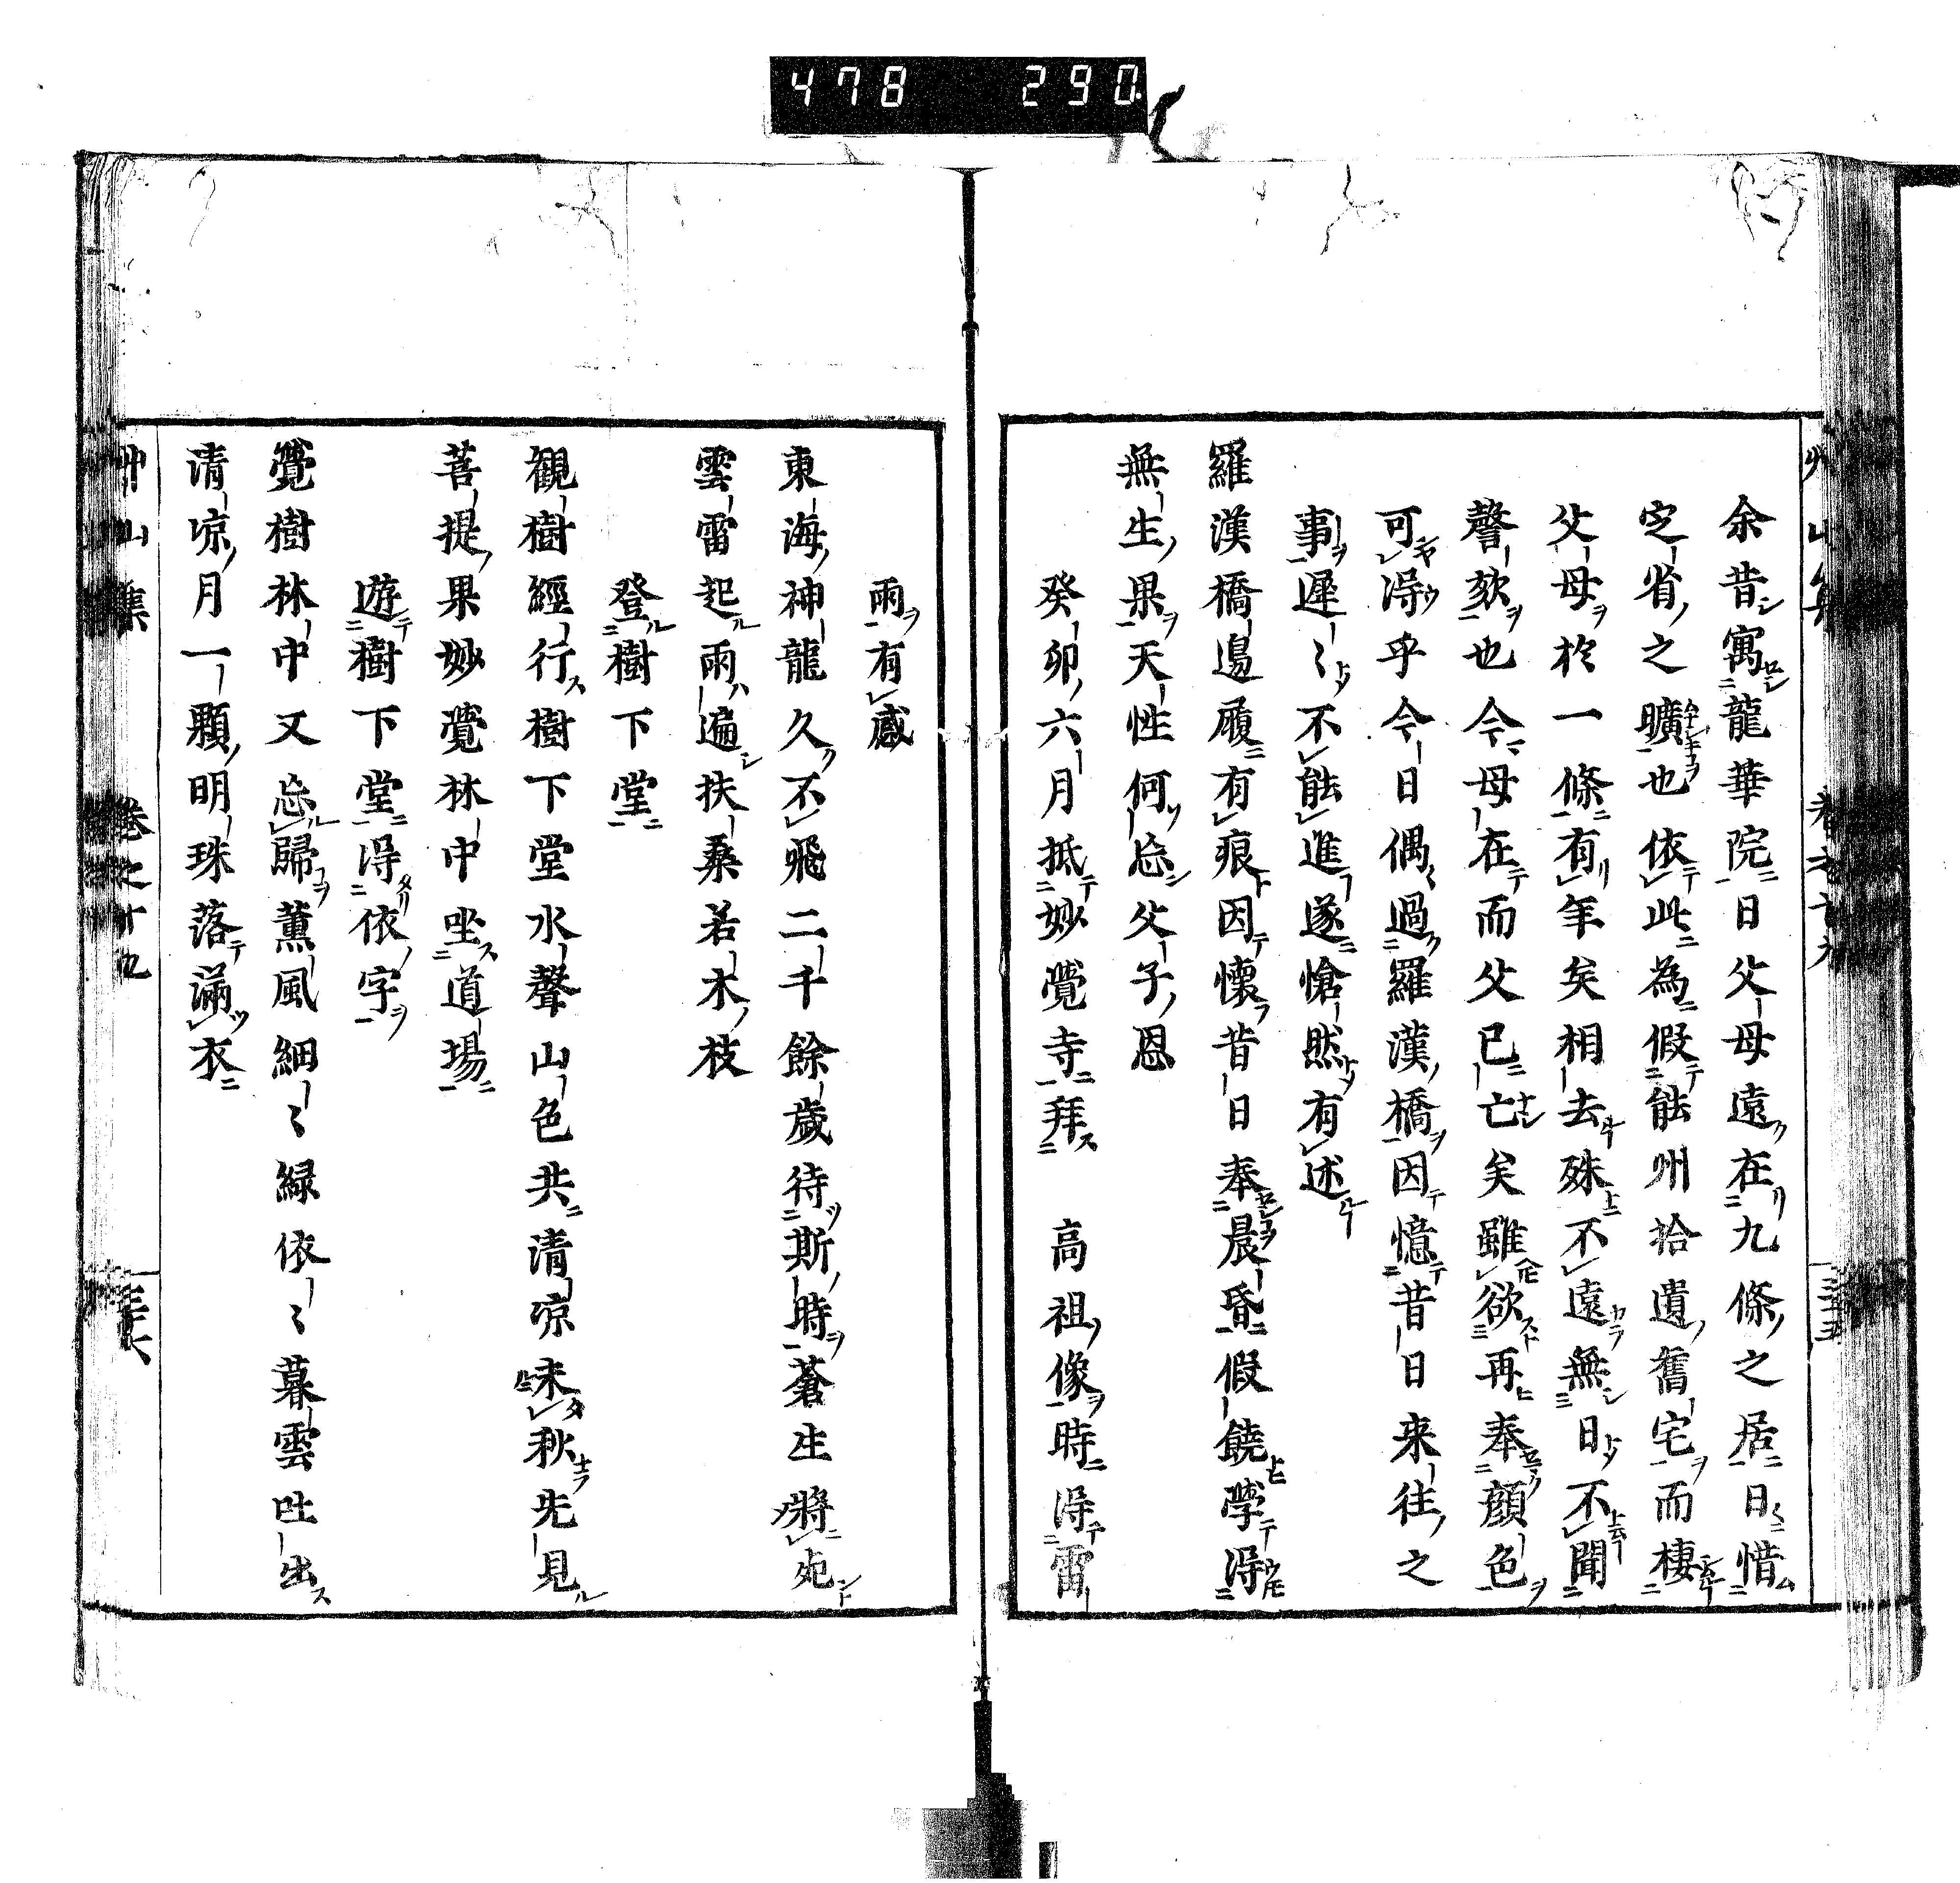 478 290
余昔寓龍華院日父母遠在九條之居日惜
定省之曠也依此為假能州拾遺舊宅而棲
父母於一條有年矣相去殊不遠無日不聞
謦欬也今母在而父已亡矣雖欲再奉顔色
可得乎今日偶過羅漢橋因憶昔日来往之
事遲〻不能進遂愴然有述
羅漢橋邊履有痕因懷昔日奉晨昏假饒學得
無生果天性何忘父子恩
癸卯六月抵妙覺寺拜　高祖像時得雷
雨有感
東海神龍久不飛二千餘歲待斯時蒼生將死
雲雷起雨遍扶桑若木枝
登樹下堂
観樹經行樹下堂水聲山色共清凉未秋先見
菩提果妙覺林中坐道場
遊樹下堂得依字
覺樹林中又忘歸薫風細〻緑依〻暮雲吐出
清凉月一顆明珠落滿衣
艸山集　卷之十九　三十六